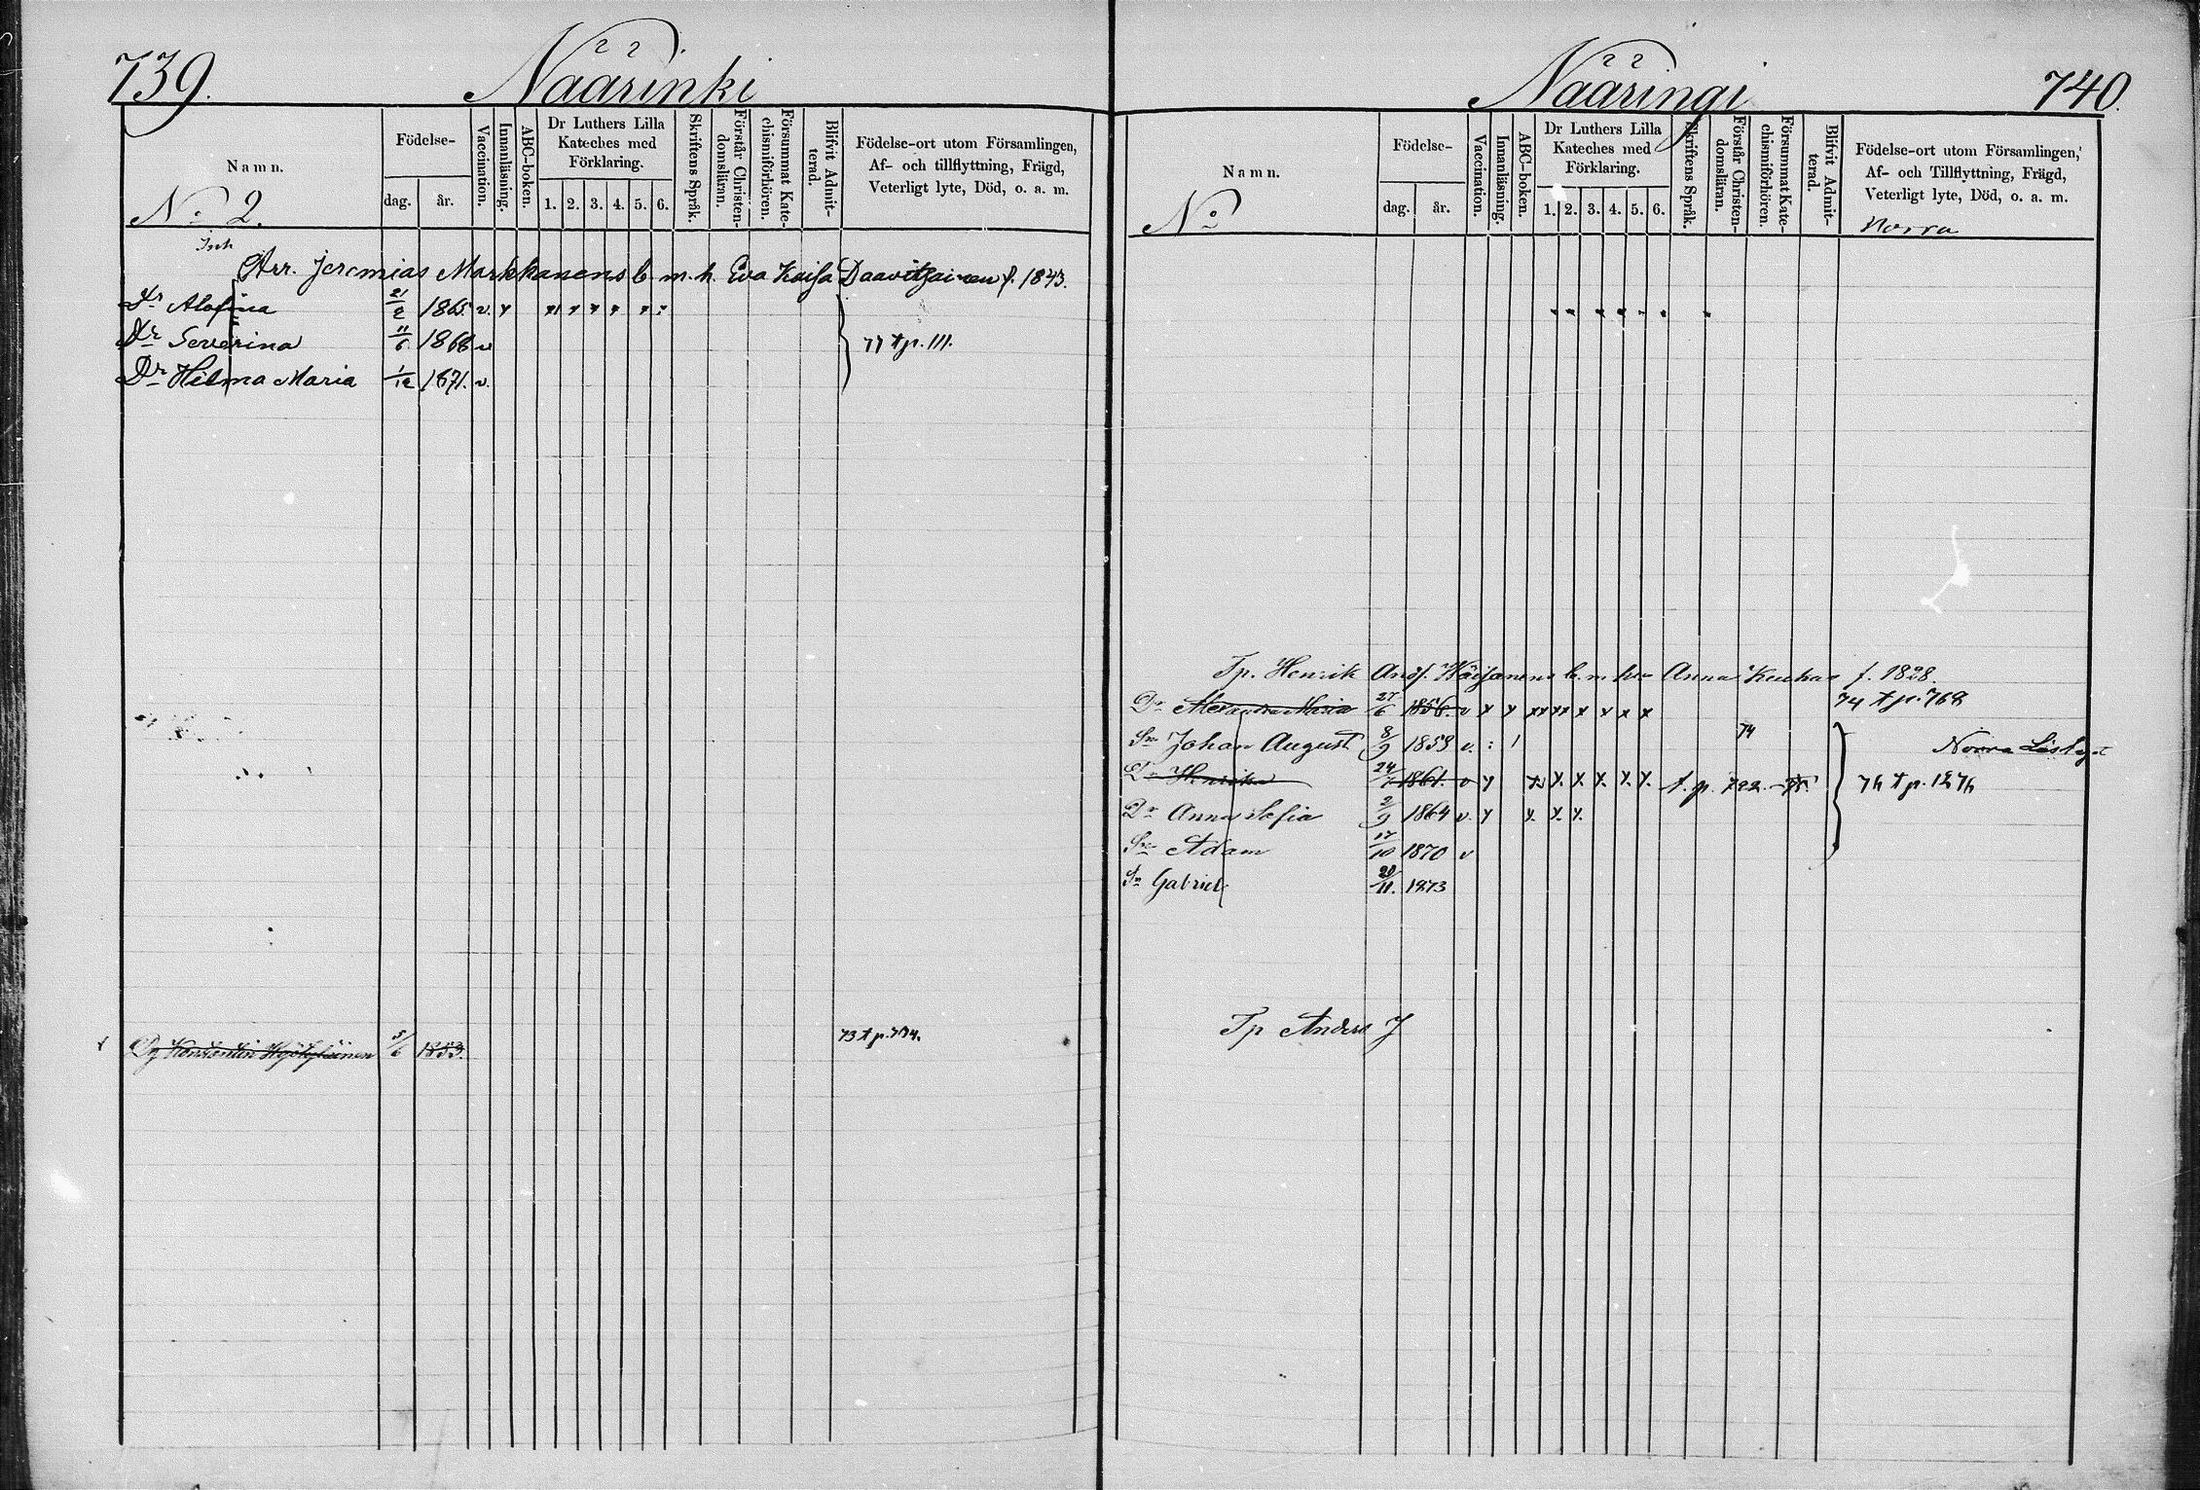 739.
Näärinki
Namn.
Födelse-
dag.
år.
Vaccination.
Innanläsning.
ABC-boken.
Dr Luthers Lilla
Kateches med
Förklaring.
1. 2. 3. 4. 5. 6.
Skriftens Språk.
Förstår Christen-
domsläran.
Försummat Kate-
chismiförhören.
Blifvit Admit-
terad.
Födelse-ort utom Församlingen,
Af- och tillflyttning, Frägd,
Veterligt lyte, Död, o. a. m.
No 2.
Inh
Arr. Jeremias Markkanens b. m. h. Eva Kaisa Daavitsainen f. 1843.
Dr 21/2 1865. v.
Dr Severina 11/6 1868 v
77 t p. 111.
Dr Hilma Maria 1/12 1871. v.
Dg Konstantin 5/6 1853. 73 t p. 774.
Nääringi
740.
Namn.
Födelse-
dag.
år.
Vaccination.
Innanläsning.
ABC-boken.
Dr Luthers Lilla
Kateches med
Förklaring.
1. 2. 3. 4. 5. 6.
Skriftens Språk.
Förstår Christen-
domsläran.
Försummat Kate-
chismiförhören.
Blifvit Admit-
terad.
Födelse-ort utom Församlingen,
Af- och Tillflyttning, Frägd,
Veterligt lyte, Död, o. a. m.
No
Norra
Tp. Henrik And.f. b. m. hu Anna f. 1828.
Dr Alexandra Maria 27/6 1856. v 74 t p. 768
Sn Johan August 8/9 1859 v. 74 Norra
Dr Henrika 24/7 1861. v t. p. 722. 75
76 t p. 1276
Dr Anna Sofia 2/9 1864 v.
Sn Adam 17/10 1870 v
Sn Gabriel 20/11. 1873
Tp Anders J